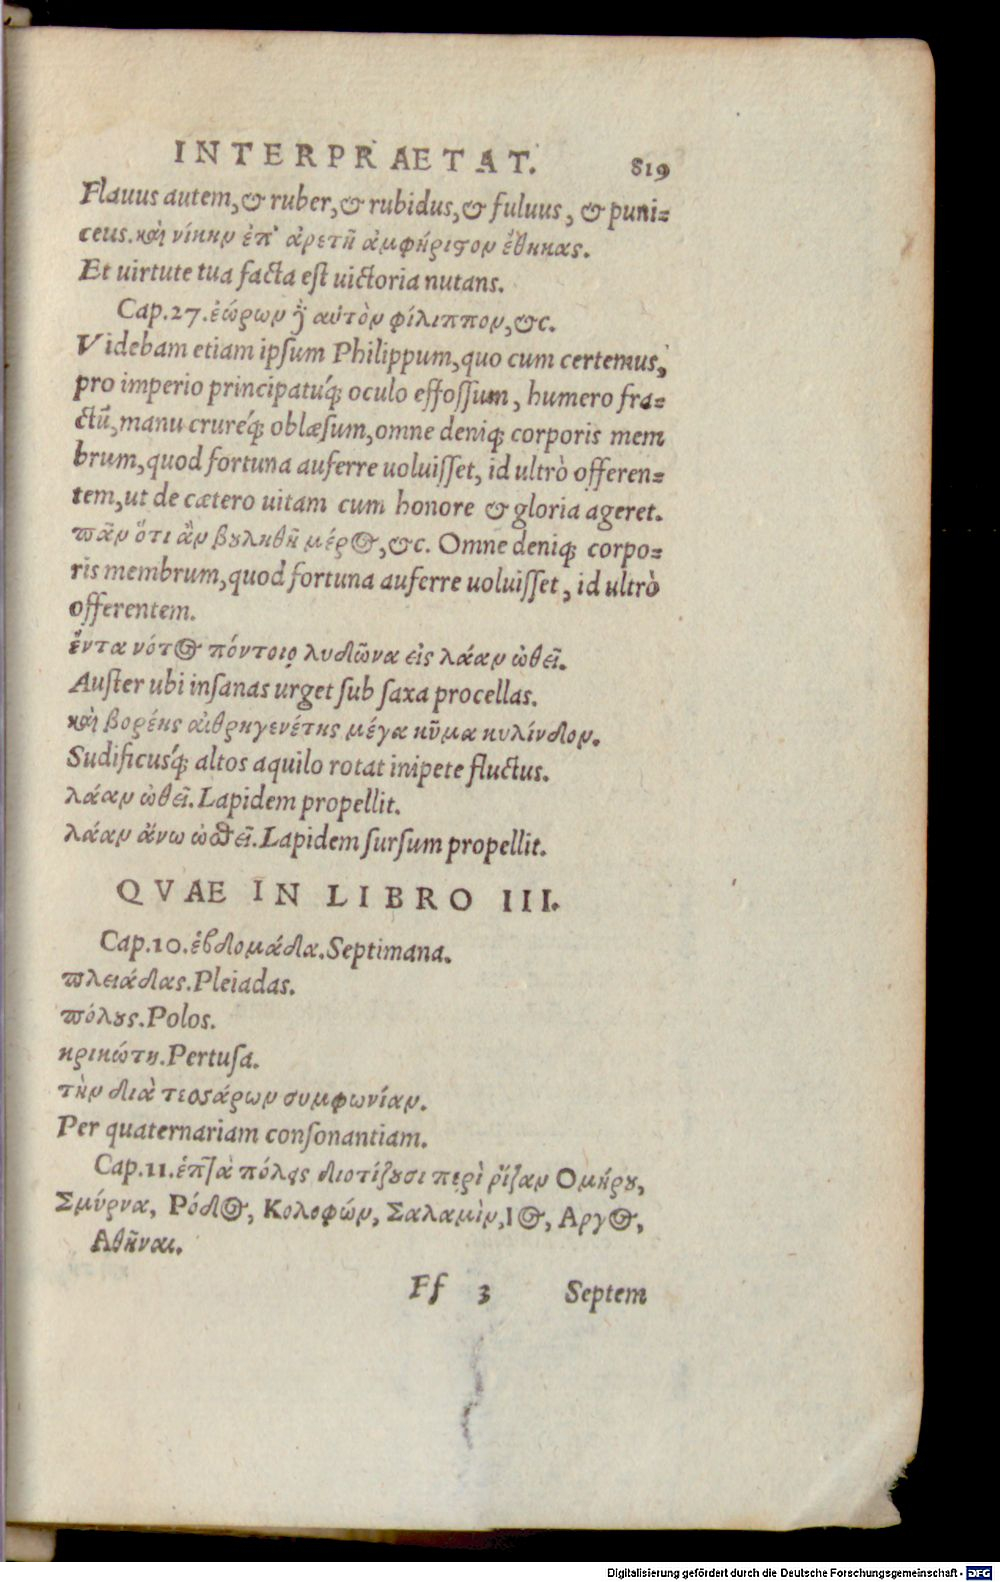 INTERPRAETAT. 819
Flauus autem, & ruber, & rubidus, & fuluus, & puni=
ceus. καὶ νίκην ἐπ' ἀρετῆ ἀμφήριϛον ἔθηκας.
Et uirtute tua facta est uictoria nutans.
Cap.27. ἑώρων ἢ αὐτὸν φίλιππον, &c.
Videbam etiam ipsum Philippum, quo cum certemus,
pro imperio principatuq́; oculo effossum, humero fra=
ctũ, manu crureq́; oblæsum, omne deniq; corporis mem
brum, quod fortuna auferre uoluisset, id ultrò offeren=
tem, ut de cætero uitam cum honore & gloria ageret.
πᾶν ὅτι ἂν βȣληθῆ μέρος, &c. Omne deniq; corpo=
ris membrum, quod fortuna auferre uoluisset, id ultrò
offerentem.
ἔντα νότος πόντοιο λυδῶνα εἰς λάαν ὠθεῖ.
Auster ubi insanas urget sub saxa procellas.
καὶ βορέης αἰθρηγενέτης μέγα κῦμα κυλίνδον.
Sudificusq́; altos aquilo rotat inipete fluctus.
λάαν ὠθεῖ. Lapidem propellit.
λάαν ἄνω ὠθεῖ. Lapidem sursum propellit.
QVAE IN LIBRO III.
Cap.10. ἑβδομάδα. Septimana.
πλειάδας. Pleiadas.
πόλȣς. Polos.
κρικώτη. Pertusa.
τὴν διὰ τεσσάρων συμφωνίαν.
Per quaternariam consonantiam.
Cap.11. ἑπτὰ πόλεις διοτίζȣσι περὶ ῥίζαν Ομήρȣ,
Σμύρνα, Ρόδος, Κολοφών, Σαλαμὶν, Ιος, Αργος,
Αθῆναι.
Ff 3 Septem
Digitalisierung gefördert durch die Deutsche Forschungsgemeinschaft - DFG